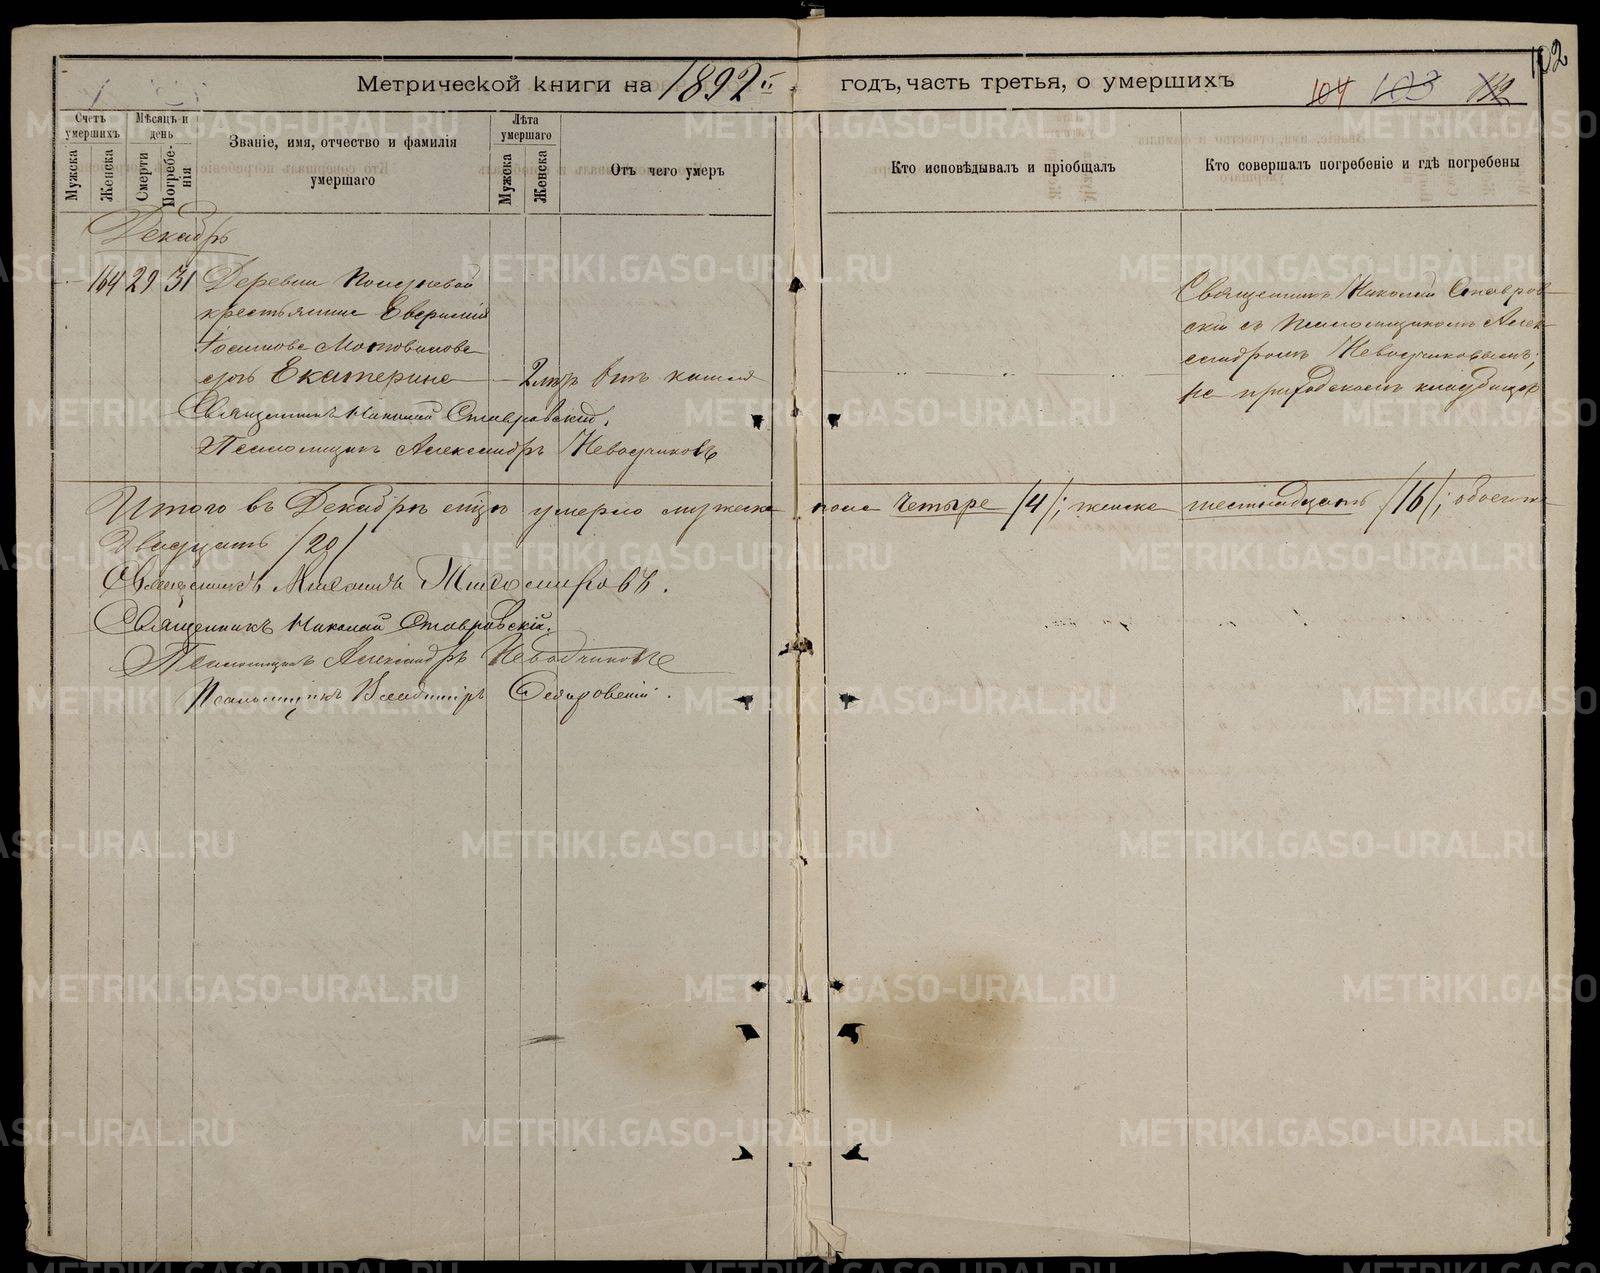 102
Метрической книги на 1892й годъ, часть третья, о умершихъ
104 103 112
Счетъ умершихъ
Мужска
Женска
Мѣсяцъ и день
Смерти
Погребенія
Званіе, имя, отчество и фамилія умершаго
Лѣта умершаго
Мужска
Женска
Отъ чего умеръ
Кто исповѣдывалъ и пріобщалъ
Кто совершалъ погребеніе и гдѣ погребены
Декабрь
164 29 31 Деревни
крестьянина
Іоаннова Мотовилова
дочь Екатерина 2 лѣтъ отъ кашля
Священникъ Николай Ставровскій.
Псаломщикъ Александръ Неводчиковъ
Священникъ Николай Ставров-
скій съ Псаломщикомъ Алек-
сандромъ Неводчиковымъ,
на приходскомъ кладбищѣ
Итого въ Декабрѣ м-цѣ умерло мужеска пола четыре /4/; женска шестнадцать /16/; обоего
Двадцать /20/
Священникъ Михаилъ Тихомировъ.
Священникъ Николай Ставровскій.
Псаломщикъ Александръ Неводчиковъ
Псаломщикъ Владиміръ
METRIKI.GASO-URAL.RU